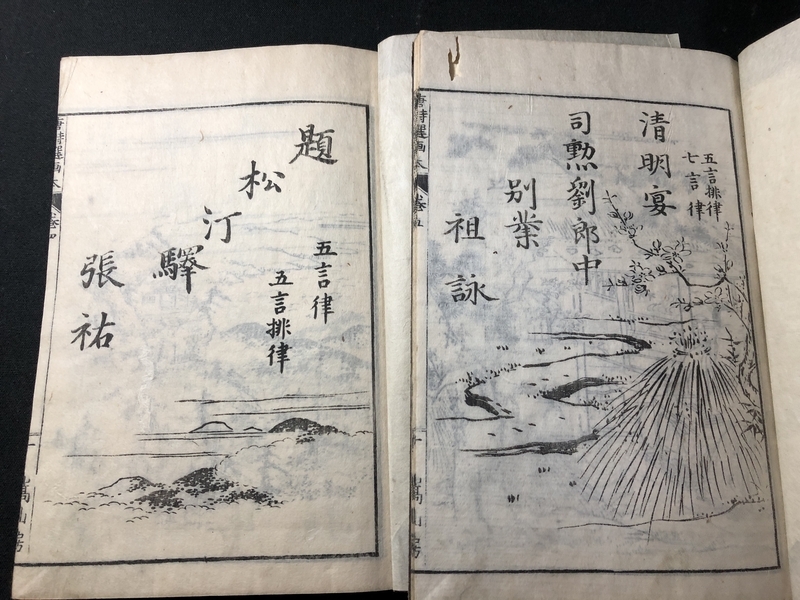 五言排律
七言律
清明宴
司勲劉郎中
別業
祖詠
唐詩選画本
卷五
嵩山房
題
松
汀
驛
五言律
五言排律
張祜
唐詩選画本
卷四
嵩山房